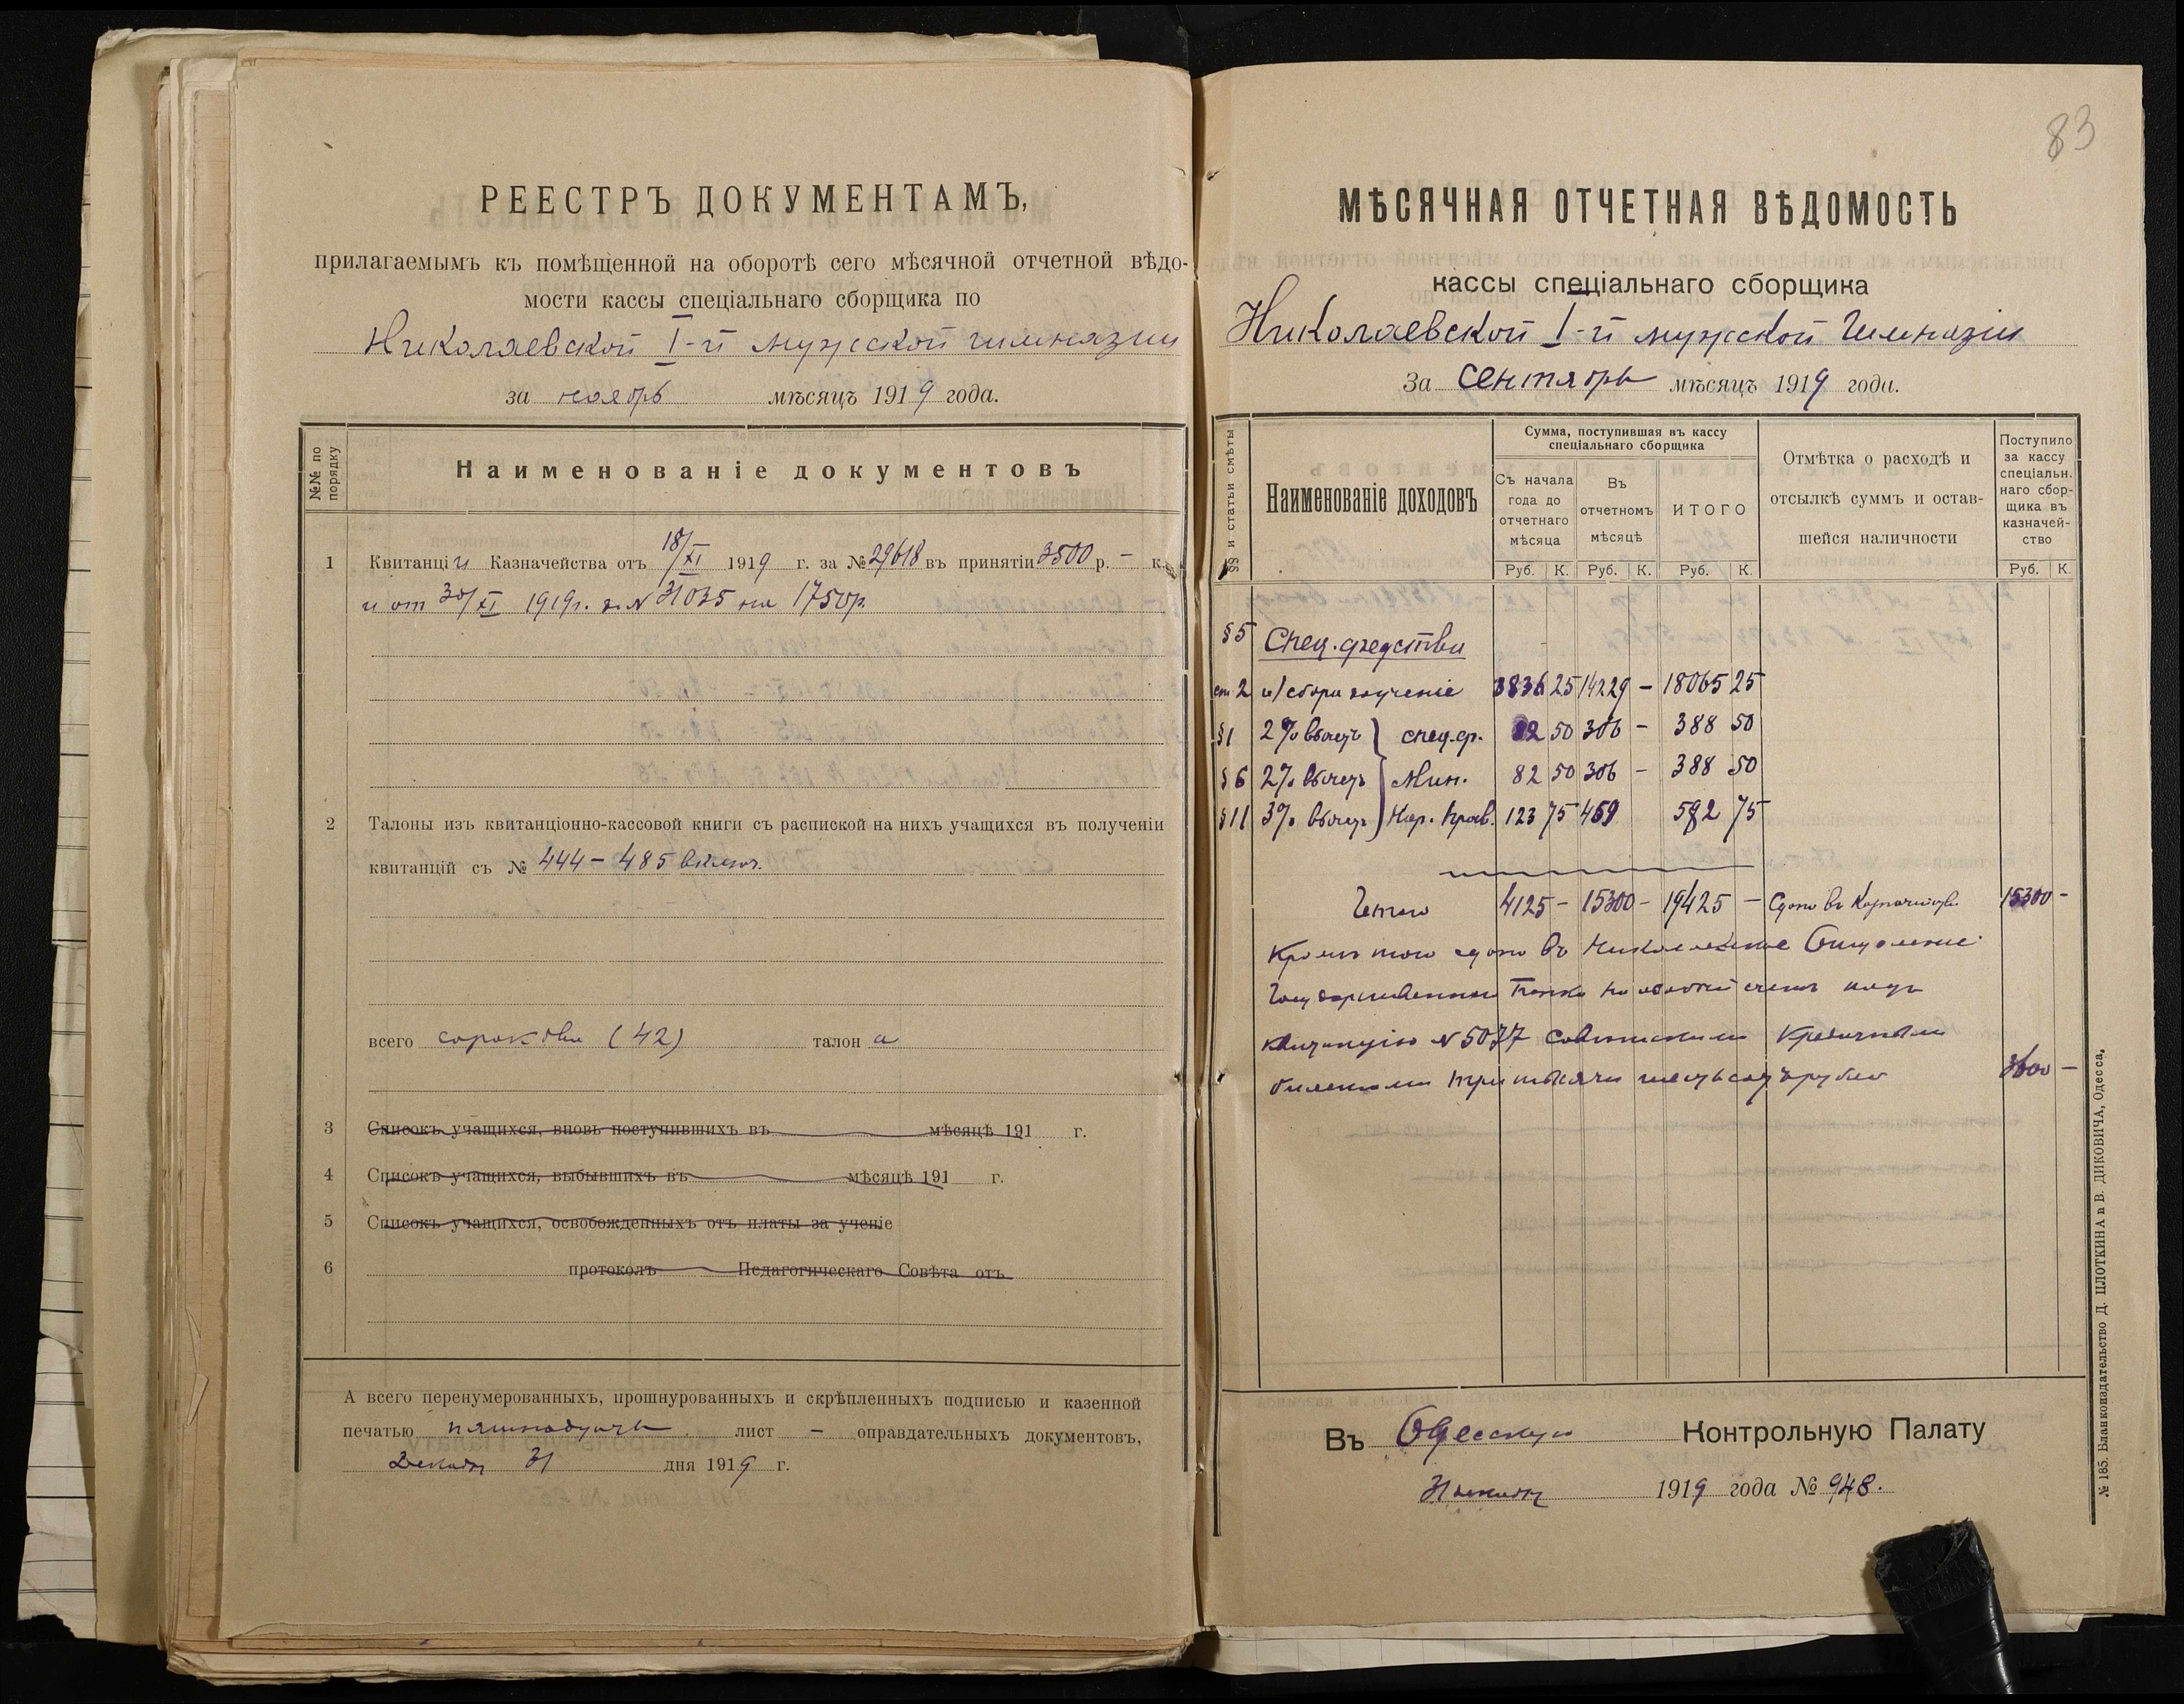 РЕЕСТРЪ ДОКУМЕНТАМЪ,
прилагаемымъ къ помѣщенной на оборотѣ сего мѣсячной отчетной вѣдо-
мости кассы спеціальнаго сборщика по
Николаевской I-й мужской гимназии
за ноябрь мѣсяцъ 1919 года.
№№ по порядку
Наименованіе документовъ
1 Квитанціи Казначейства отъ 18/XI 1919 г. за № 29618 въ принятіи 3500 р. – к.
и от 30/XI 1919г. за № 31035 на 1750р.
2 Талоны изъ квитанціонно-кассовой книги съ распиской на нихъ учащихся въ полученіи
квитанцій съ № 444 – 485 включ.
всего сорок два (42) талон а
3 Списокъ учащихся, вновь поступившихъ въ мѣсяцѣ 191 г.
4 Списокъ учащихся, выбывшихъ въ мѣсяцѣ 191 г.
5 Списокъ учащихся, освобожденныхъ отъ платы за ученіе
6 протоколъ Педагогическаго Совѣта отъ
А всего перенумерованныхъ, прошнурованныхъ и скрѣпленныхъ подписью и казенной
печатью лист – оправдательныхъ документовъ,
Декабря 31 дня 1919 г.
83
МѢСЯЧНАЯ ОТЧЕТНАЯ ВѢДОМОСТЬ
кассы спеціальнаго сборщика
Николаевской I-й мужской Гимназіи
За Сентябрь мѣсяцъ 1919 года.
§§ и статьи смѣты
Наименованіе доходовъ
Сумма, поступившая въ кассу
спеціальнаго сборщика
Съ начала года до отчетнаго мѣсяца
Въ отчетномъ мѣсяцѣ
ИТОГО
Отмѣтка о расходѣ и
отсылкѣ суммъ и остав-
шейся наличности
Поступило за кассу спеціальн. наго сбор- щика въ казначей- ство
Руб. К. Руб. К. Руб. К. Руб. К.
§ 5 Спец. средства
ст 2 а) сборы за ученіе 3836 25 14229 – 18065 25
§ 1 2% вычетъ спец. ср. 82 50 306 – 388 50
§ 6 2% вычетъ Мин. 82 50 306 – 388 50
§ 11 3% вычетъ Нар. Прав. 123 75 459 582 75
Итого 4125 – 15300 – 19425 – Сдано въ Казначейств. 15300 –
Кромѣ того сдано въ Николаевское Отдѣленіе
Государственнаго Банка на особый счетъ подъ
квитанцію № 5077 совѣтскими кредитными
билетами три тысячи шестьсотъ рублей 3600 –
Въ Одесскую Контрольную Палату
31 декабря 1919 года № 948.
№ 185. Бланкоиздательство Д. ПЛОТКИНА и В. ДИКОВИЧА, Одесса.